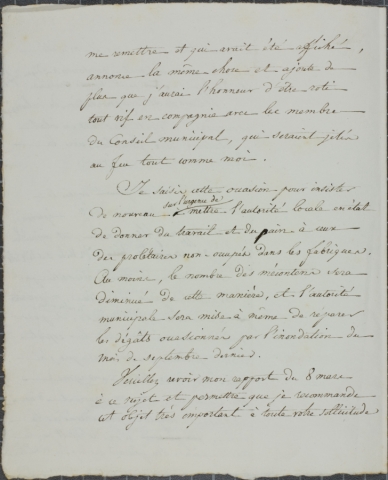 me remettre et qui avait été affiché,
annonce la même chose et ajoute de
plus que j'aurai l'honneur d'être roti
tout vif en compagnie avec les membres
du Conseil municipal, qui seraient jetés
au feu tout comme moi.
Je saisis cette occasion pour insister
de nouveau sur l'urgence de mettre l'autorité locale en état
de donner du travail et du pain à ceux
des prolétaires non occupés dans les fabriques.
Au moins, le nombre des mécontens sera
diminué de cette manière, et l'autorité
municipale sera mise à même de reparer
les dégâts occasionnés par l'inondation du
mois de septembre dernier.
Veuillez revoir mon rapport du 8 mars
à ce sujet et permettre que je recommande
cet objet très important à toute votre sollicitude